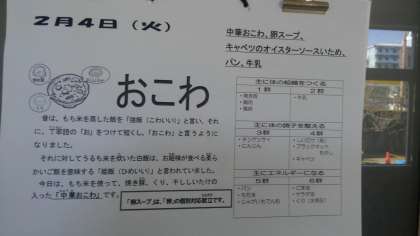 2月4日（火）
中華おこわ、卵スープ、
キャベツのオイスターソースいため、
パン、牛乳
おこわ
昔は、もち米を蒸した飯を「強飯（こわいい）」と言い、それ
に、丁寧語の「お」をつけて短くし、「おこわ」と言うように
なりました。
それに対してうるち米を炊いた白飯は、お姫様が食べる柔ら
かいご飯を意味する「姫飯（ひめいい）」と言われていました。
今日は、もち米を使って、焼き豚、くり、干ししいたけの
入った「中華おこわ」です。
「卵スープ」は、「卵」の個別対応献立です。
主に体の組織をつくる
1群 2群
・焼き豚 ・牛乳
・鶏卵
主に体の調子を整える
3群 4群
・チンゲンサイ ・しいたけ
・にんじん
・キャベツ
主にエネルギーになる
5群 6群
・パン ・ごま油
・もち米 ・サラダ油
・じゃがいもでんぷん ・くり